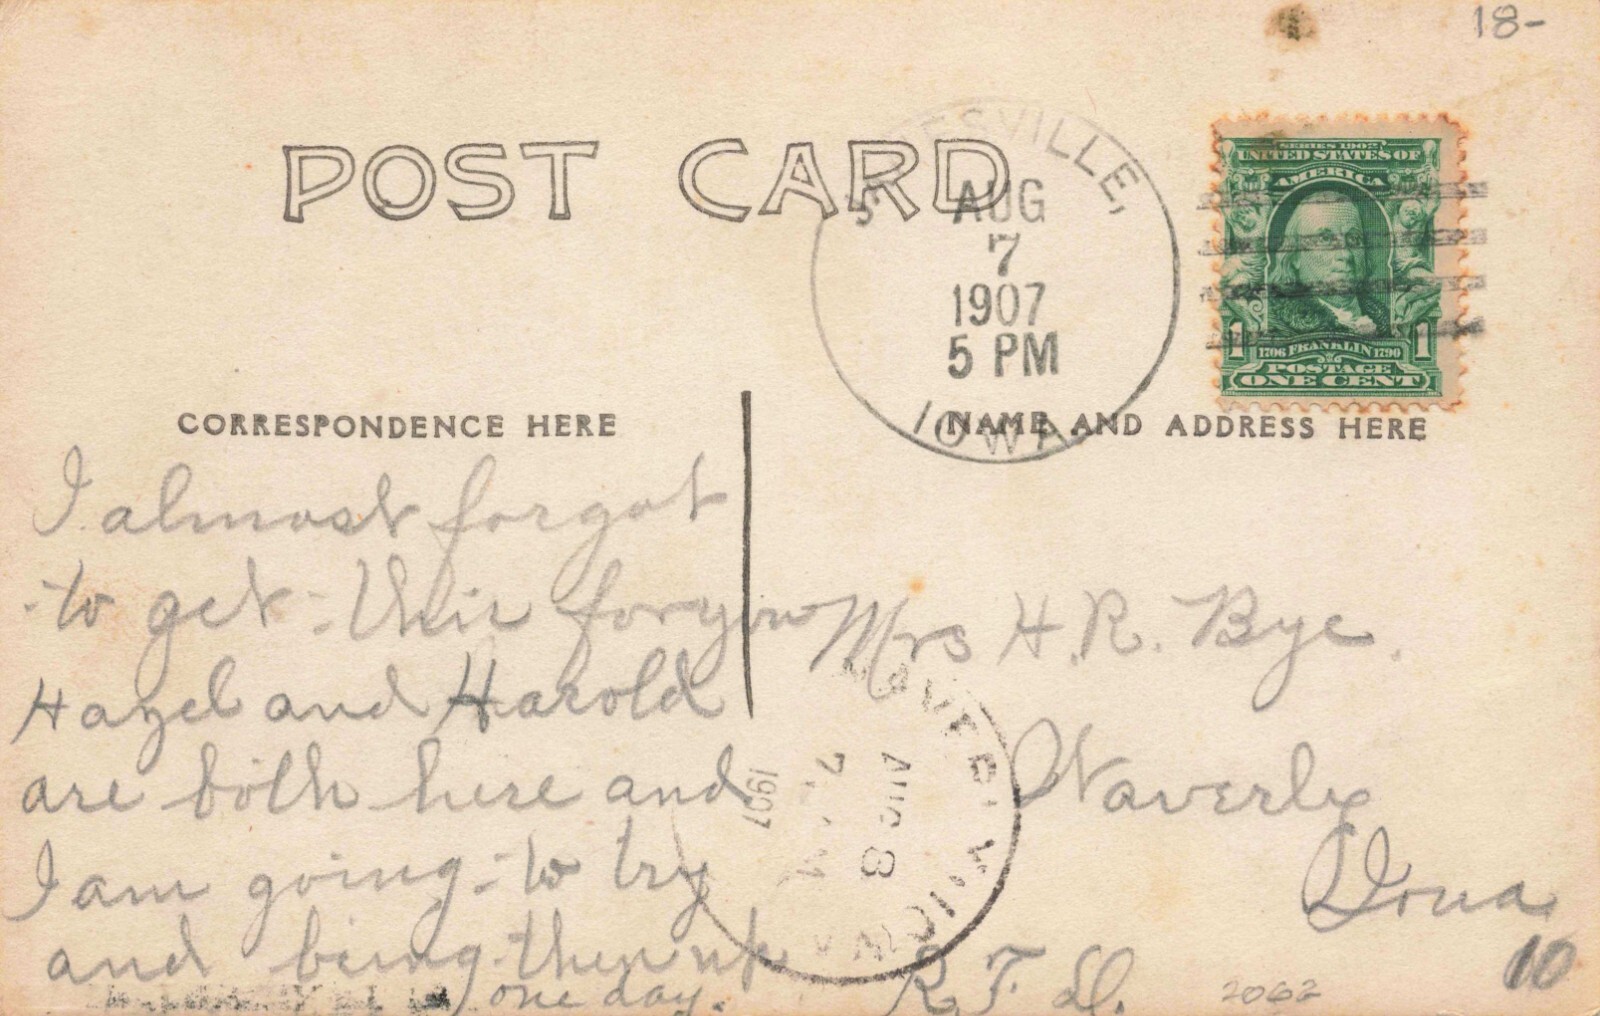 18-
POST CARD
ESVILLE,
AUG
7
1907
5 PM
IOWA.
SERIES 1902
UNITED STATES OF
AMERICA
1 1
1706 FRANKLIN 1790
POSTAGE
ONE CENT
CORRESPONDENCE HERE
I almost forgot
to get this for you
Hazel and Harold
are both here and
I am going to try
and being them up
one day.
NAME AND ADDRESS HERE
Mrs H. R. Bye.
Waverly
Iowa
R. F. D. 10
AUG 8
1907
2062